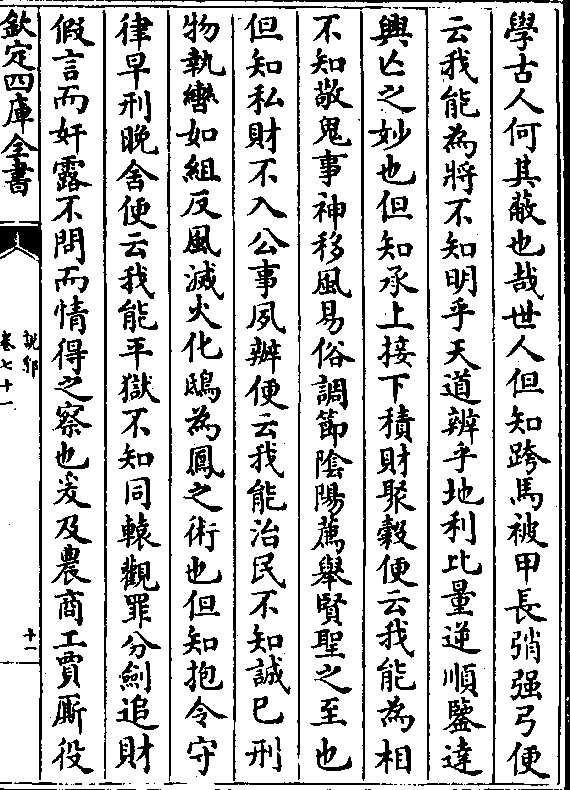 學古人何其蔽也哉世人但知跨馬被甲長弰强弓便
云我能為將不知明乎天道辨乎地利比量逆順鑒達
興亡之妙也但知承上接下積財聚穀便云我能為相
不知敬鬼事神移風易俗調節隂陽薦舉賢聖之至也
但知私財不入公事夙辦便云我能治民不知誠已刑
物執轡如組反風滅火化鴟為鳳之術也但知抱令守
律早刑晚舍便云我能平獄不知同轅觀罪分劍追財
假言而奸露不問而情得之察也爰及農商工賈厮役
欽定四庫全書
說郛
卷七十一
十一